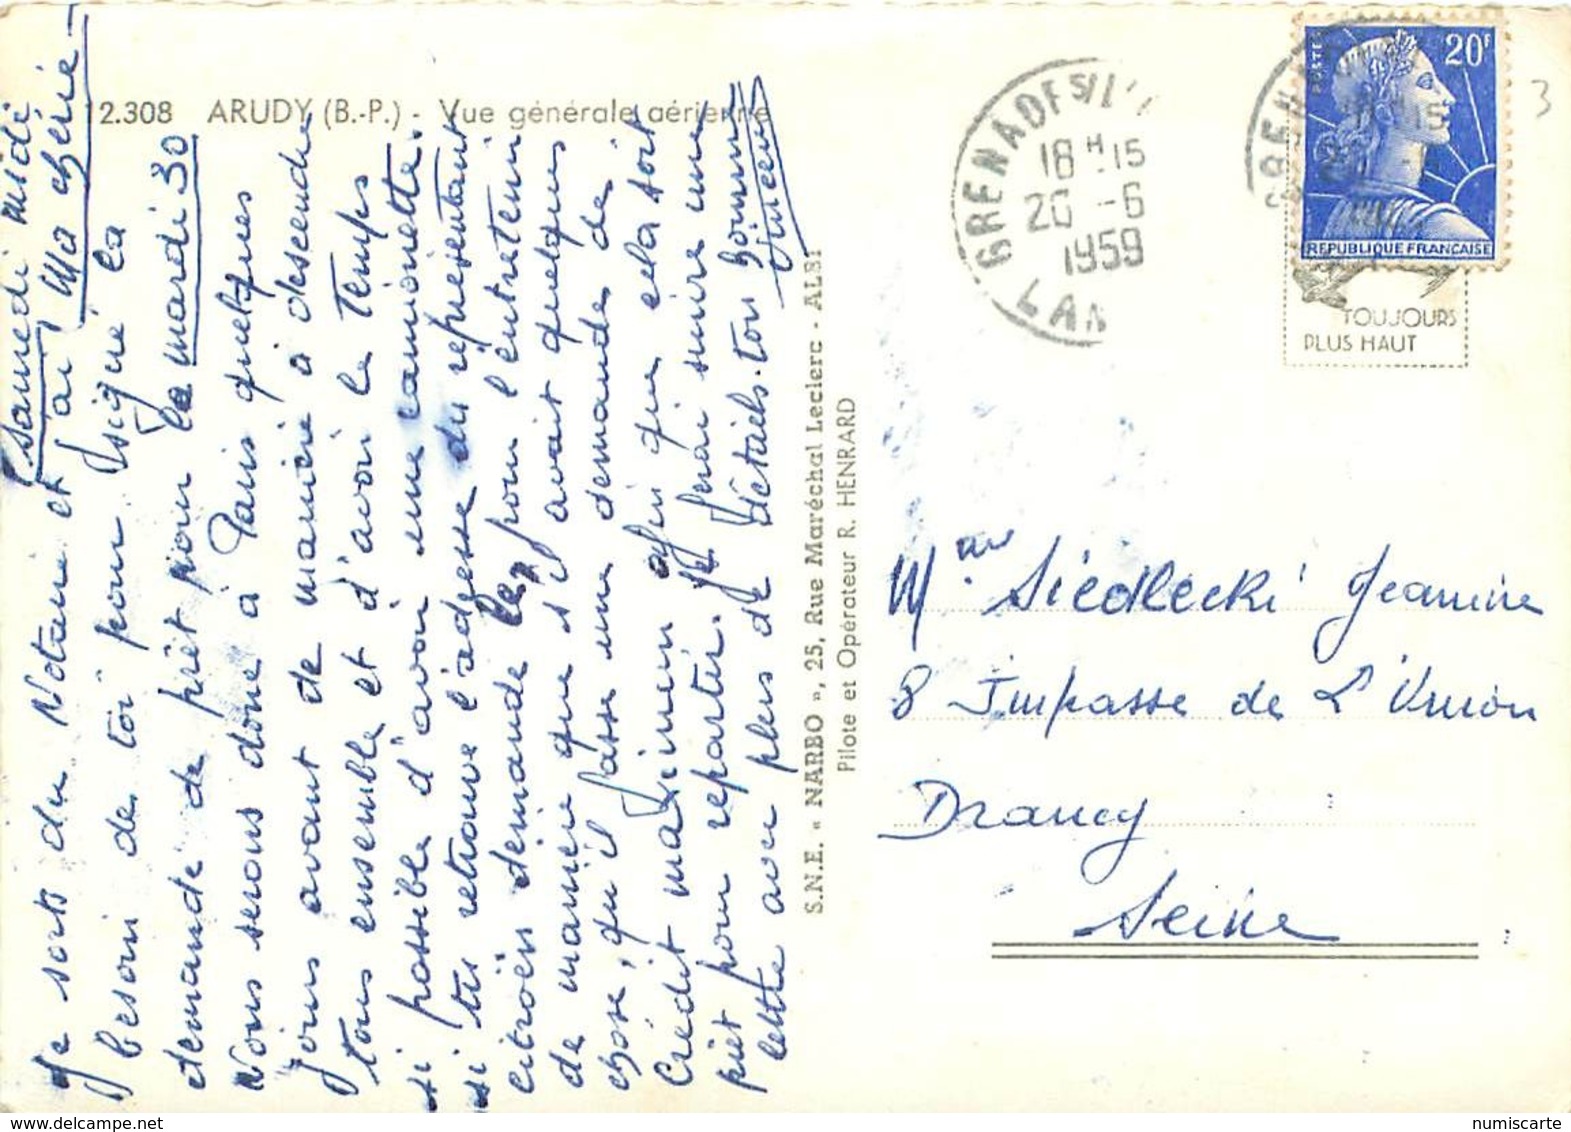 12.308 ARUDY (B.-P.) - Vue générale aérienne
Samedi midi
Ma chérie -
Je sors du Notaire et j'ai
besoin de toi pour signé la
demande de prêt pour le mardi 30
Nous serons donc à Paris quelques
jours avant de manière à descendre
tous ensemble et d'avoir le temps
si possible d'avoir une camionnette.
si tu retrouve l'adresse du représentant
citroën demande le, pour l'entretenir
de manière que s'il avait quelques
chose, qu'il fasse une demande de
Crédit maximum afin que cela soit
prêt pour repartir. Je ferai suivre une
lettre avec plus de détails. ton homme
Vincent
S.N.E. « NARBO », 25, Rue Maréchal Leclerc - ALBI
Pilote et Opérateur R. HENRARD
GRENADE S/L'
18 H 15
26 -6
1959
LAN
POSTES
20F
REPUBLIQUE FRANÇAISE
TOUJOURS
PLUS HAUT
3
Mme Siedlecki Jeanine
8 Impasse de L'Union
Drancy
Seine
numiscarte